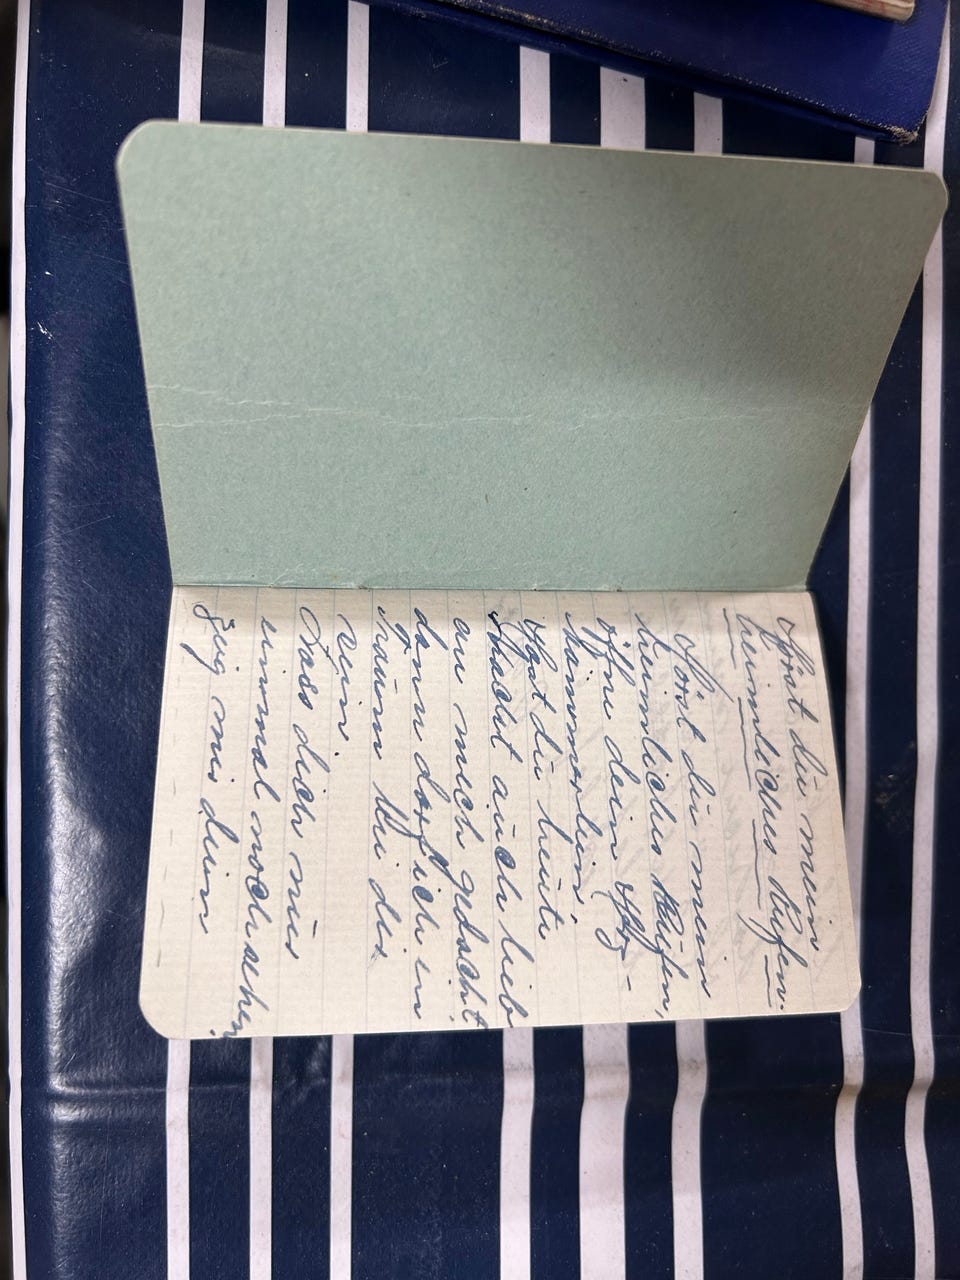 Hörst du mein
heimliches Rufen.
Hörst du mein
heimliches Rufen,
öffne dein Herz-
kämmerlein,
Hast du heute
Nacht auch lieb
an mich gedacht
dann darf ich im
Traum bei dir
sein.
Lass dich nur
einmal noch sehen,
zeig mir dein